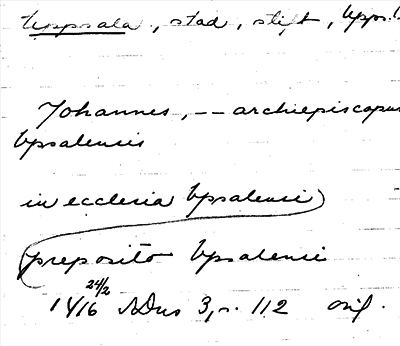 Uppsala, stad, stift, Upps.
Johannes, -- archiepiscopus
Vpsalensis
in ecclesia Vpsalensi
preposito Vpsalensi
1416 24/2 SDns 3, s. 112 orig.